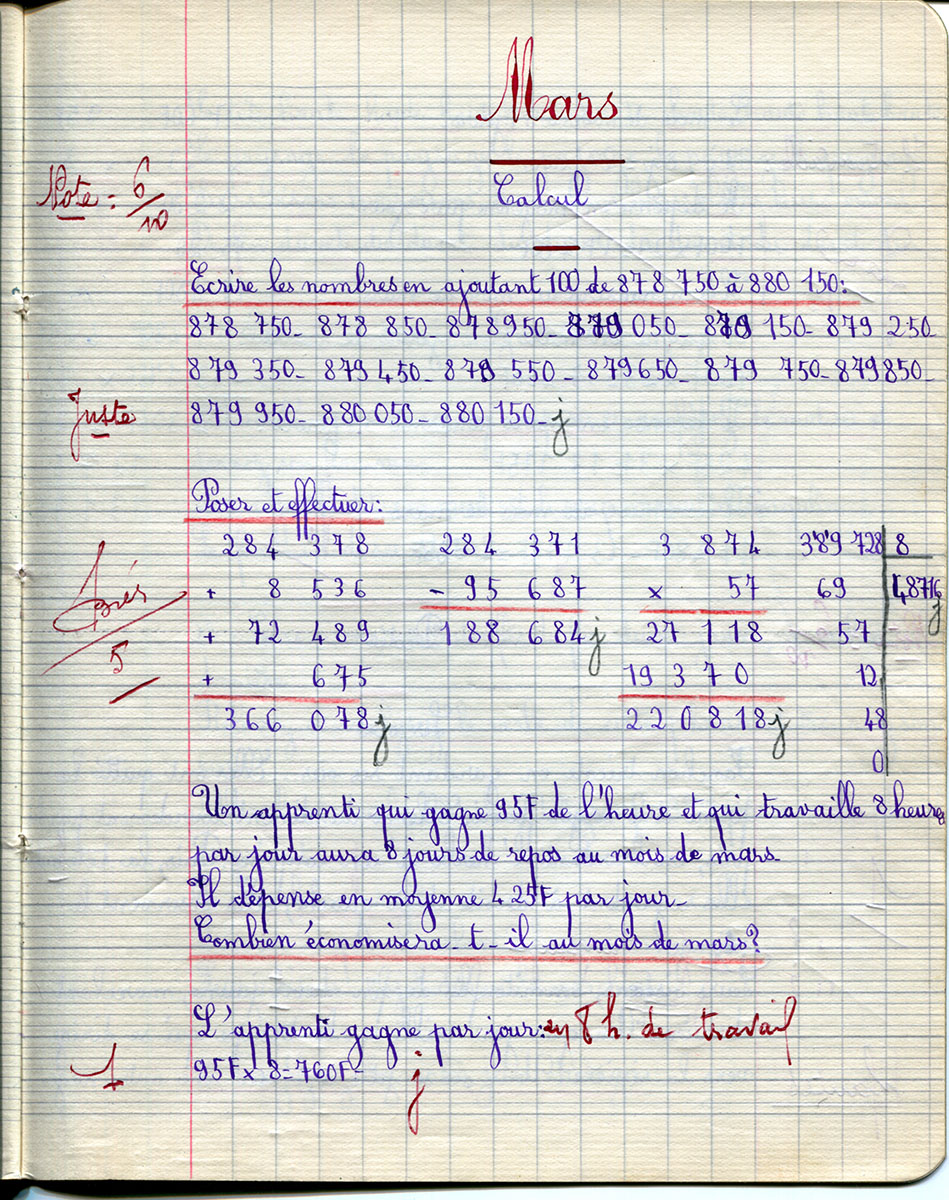 Mars
Note = 6/10
Calcul
Ecrire les nombres en ajoutant 100 de 878 750 à 880 150:
878 750_ 878 850_ 878950_ 879 050_ 879 150_ 879 250_
879 350_ 879 450_ 879 550_ 879650_ 879 750_ 879850_
Juste
879 950_ 880 050_ 880 150_ j
Poser et effectuer:
284 378 284 371 3 874 389 728 8
+ 8 536 - 95 687 x 57 69 48716 j
+ 72 489 188 684 j 27 118 57
5
+ 675 19 370 12
366 078 j 220 818 j 48
0
Un apprenti qui gagne 95F de l'heure et qui travaille 8 heures
par jour aura 8 jours de repos au mois de mars_
Il dépense en moyenne 425F par jour_
Combien économisera_t_il au mois de mars?
L'apprenti gagne par jour: en 8 h. de travail
1
95F x 8 = 760F_ j